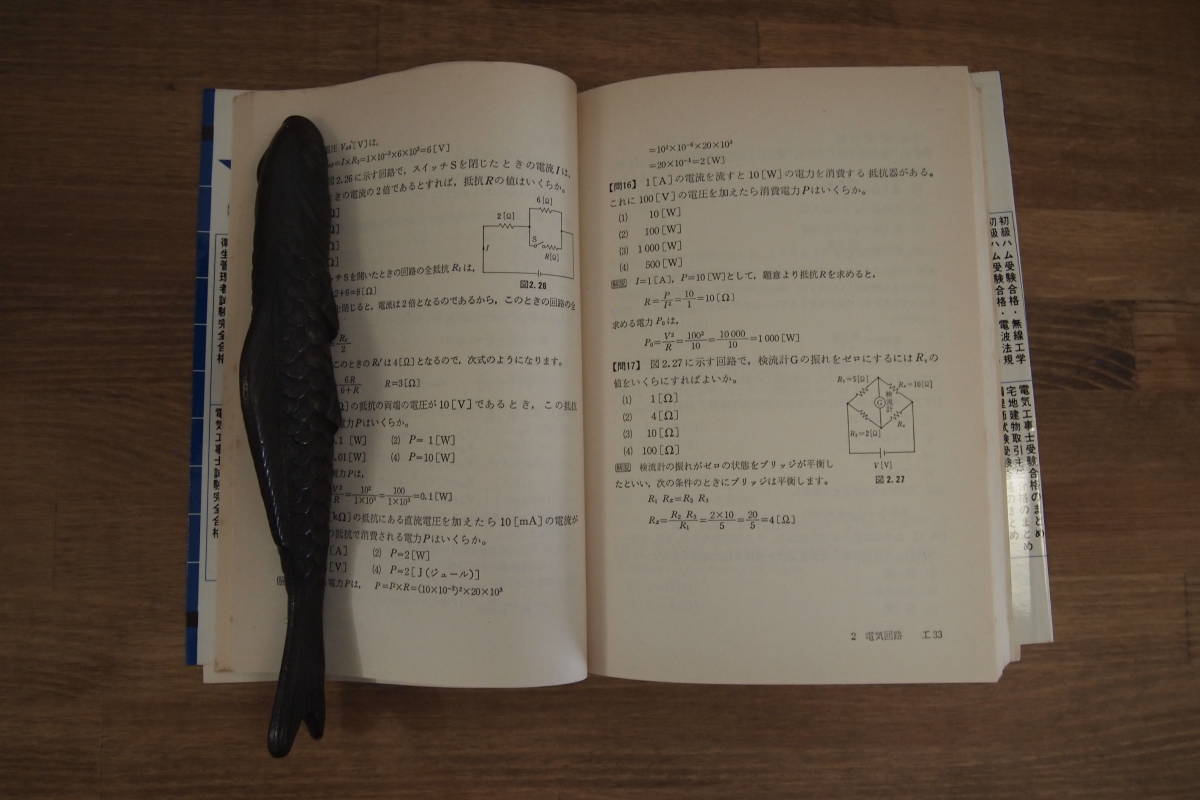 電圧 Vab[V]は、
=I×R₁=1×10⁻³×6×10³=6[V]
図2.26に示す回路で，スイッチSを閉じたときの電流Iは，
ときの電流の2倍であるとすれば，抵抗Rの値はいくらか。
6[Ω]
2[Ω]
S
R[Ω]
I
図2.26
チSを開いたときの回路の全抵抗R₁は，
2+6=8[Ω]
を閉じると，電流は2倍となるのであるから，このときの回路の全
R₁
2
このときのR₁′は4[Ω]となるので，次式のようになります。
6R/6+R R=3[Ω]
[Ω]の抵抗の両端の電圧が10[V]であるとき，この抵抗
電力Pはいくらか。
.1[W] (2) P= 1[W]
.01[W] (4) P=10[W]
電力Pは，
V²/R=10²/1×10³=100/1×10³=0.1[W]
[kΩ]の抵抗にある直流電圧を加えたら10[mA]の電流が
の抵抗で消費される電力Pはいくらか。
[A] (2) P=2[W]
[V] (4) P=2[J(ジュール)]
電力Pは， P=I²×R=(10×10⁻³)²×20×10³
=10²×10⁻⁶×20×10³
=20×10⁻¹=2[W]
【問16】 1[A]の電流を流すと10[W]の電力を消費する抵抗器がある。
これに100[V]の電圧を加えたら消費電力Pはいくらか。
(1) 10[W]
(2) 100[W]
(3) 1000[W]
(4) 500[W]
解説 I=1[A]，P=10[W]として，題意より抵抗Rを求めると，
R=P/I²=10/1=10[Ω]
求める電力P₀は，
P₀=V²/R=100²/10=10000/10=1000[W]
【問17】 図2.27に示す回路で，検流計Gの振れをゼロにするにはRₓの
値をいくらにすればよいか。
(1) 1[Ω]
(2) 4[Ω]
(3) 10[Ω]
(4) 100[Ω]
R₁=5[Ω]
R₃=10[Ω]
G
検流計
R₂=2[Ω]
Rₓ
V[V]
図2.27
解説 検流計の振れがゼロの状態をブリッジが平衡し
たといい，次の条件のときにブリッジは平衡します。
R₁ Rₓ=R₂ R₃
Rₓ=R₂ R₃/R₁=2×10/5=20/5=4[Ω]
2 電気回路 工33
衛生管理者試験完全合格
電気工事士試験完全合格
初級ハム受験合格・無線工学
初級ハム受験合格・電波法規
電気工事士受験合格のまとめ
宅地建物取引主